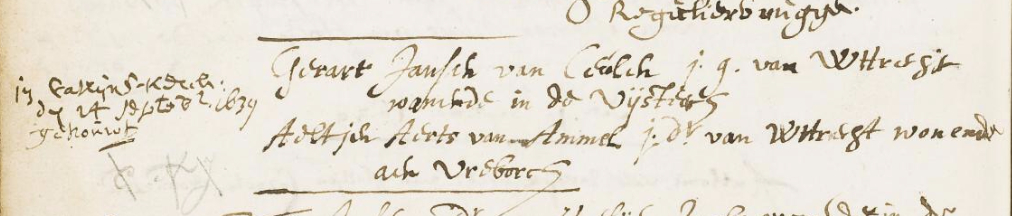 O Regulierbrugge.
in Catrijne-Kerck.
dē 14 septebr 1639
getrouwt
Gerart Jansen van Ceulen j. g. van Wttrecht
wonende in de Vijsteech
Aeltjen Aerts van Ammel j. dr van Wttrecht wonende
aen Vreborch